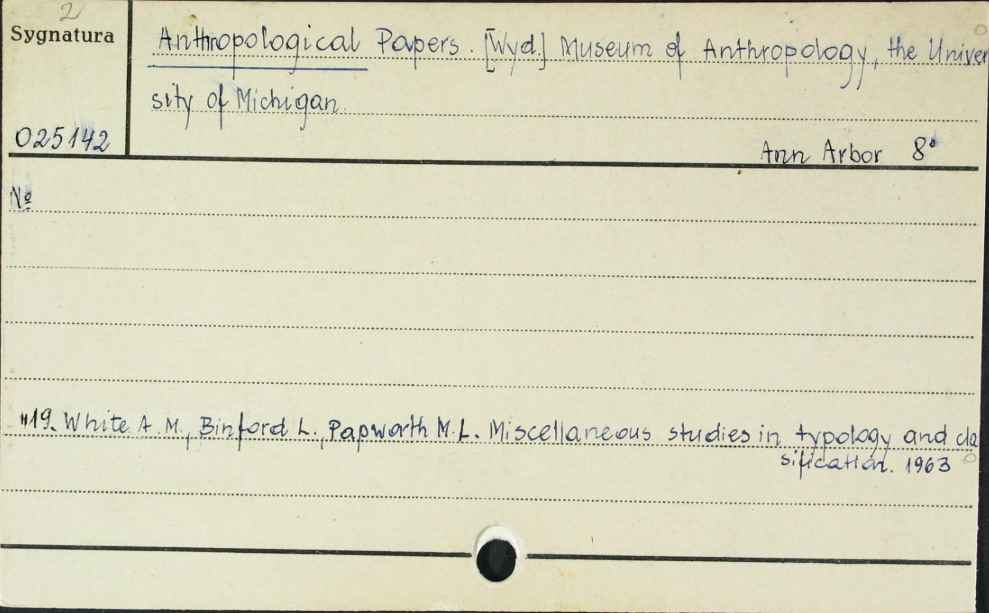 2
Sygnatura
Anthropological Papers. [Wyd.] Museum of Anthropology, the Univer
sity of Michigan.
025142
Ann Arbor 8°
№
"19. White A. M., Binford L., Papworth M.L. Miscellaneous studies in typology and cla
sification. 1963